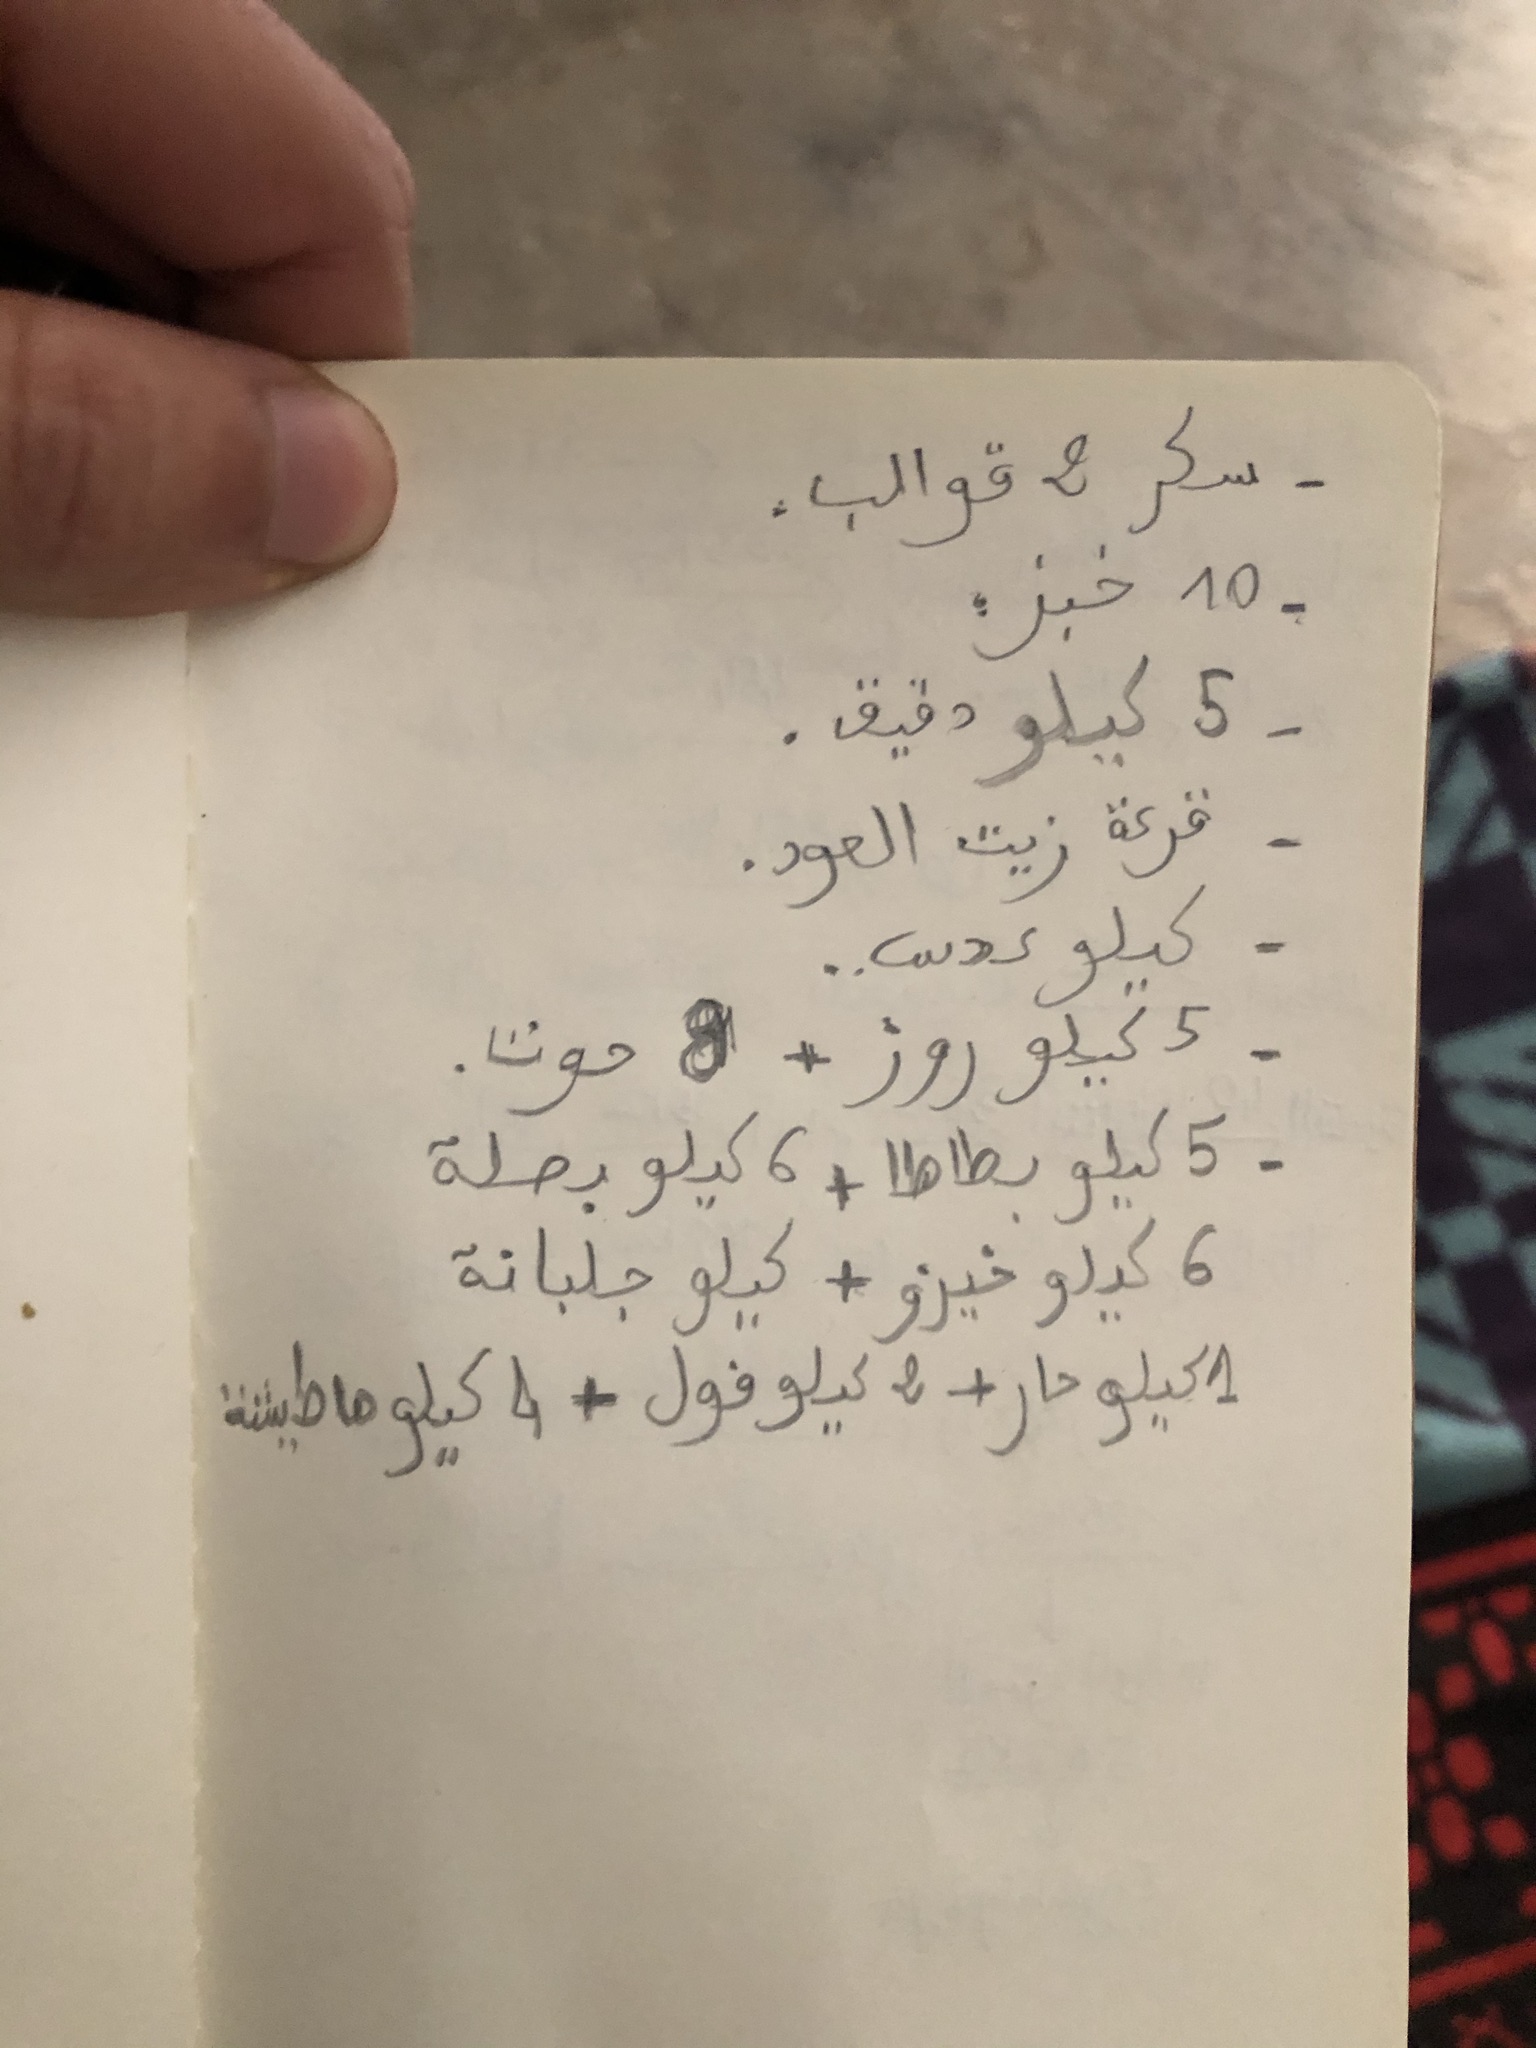 - سكر 2 قوالب.
- 10 خبز.
- 5 كيلو دقيق.
- قرعة زيت العود.
- كيلو عدس..
- 5 كيلو روز + 8 حوت.
- 5 كيلو بطاطا + 6 كيلو بصلة
6 كيلو خيزو + كيلو جلبانة
1 كيلو حار + 2 كيلو فول + 4 كيلو ماطيشة